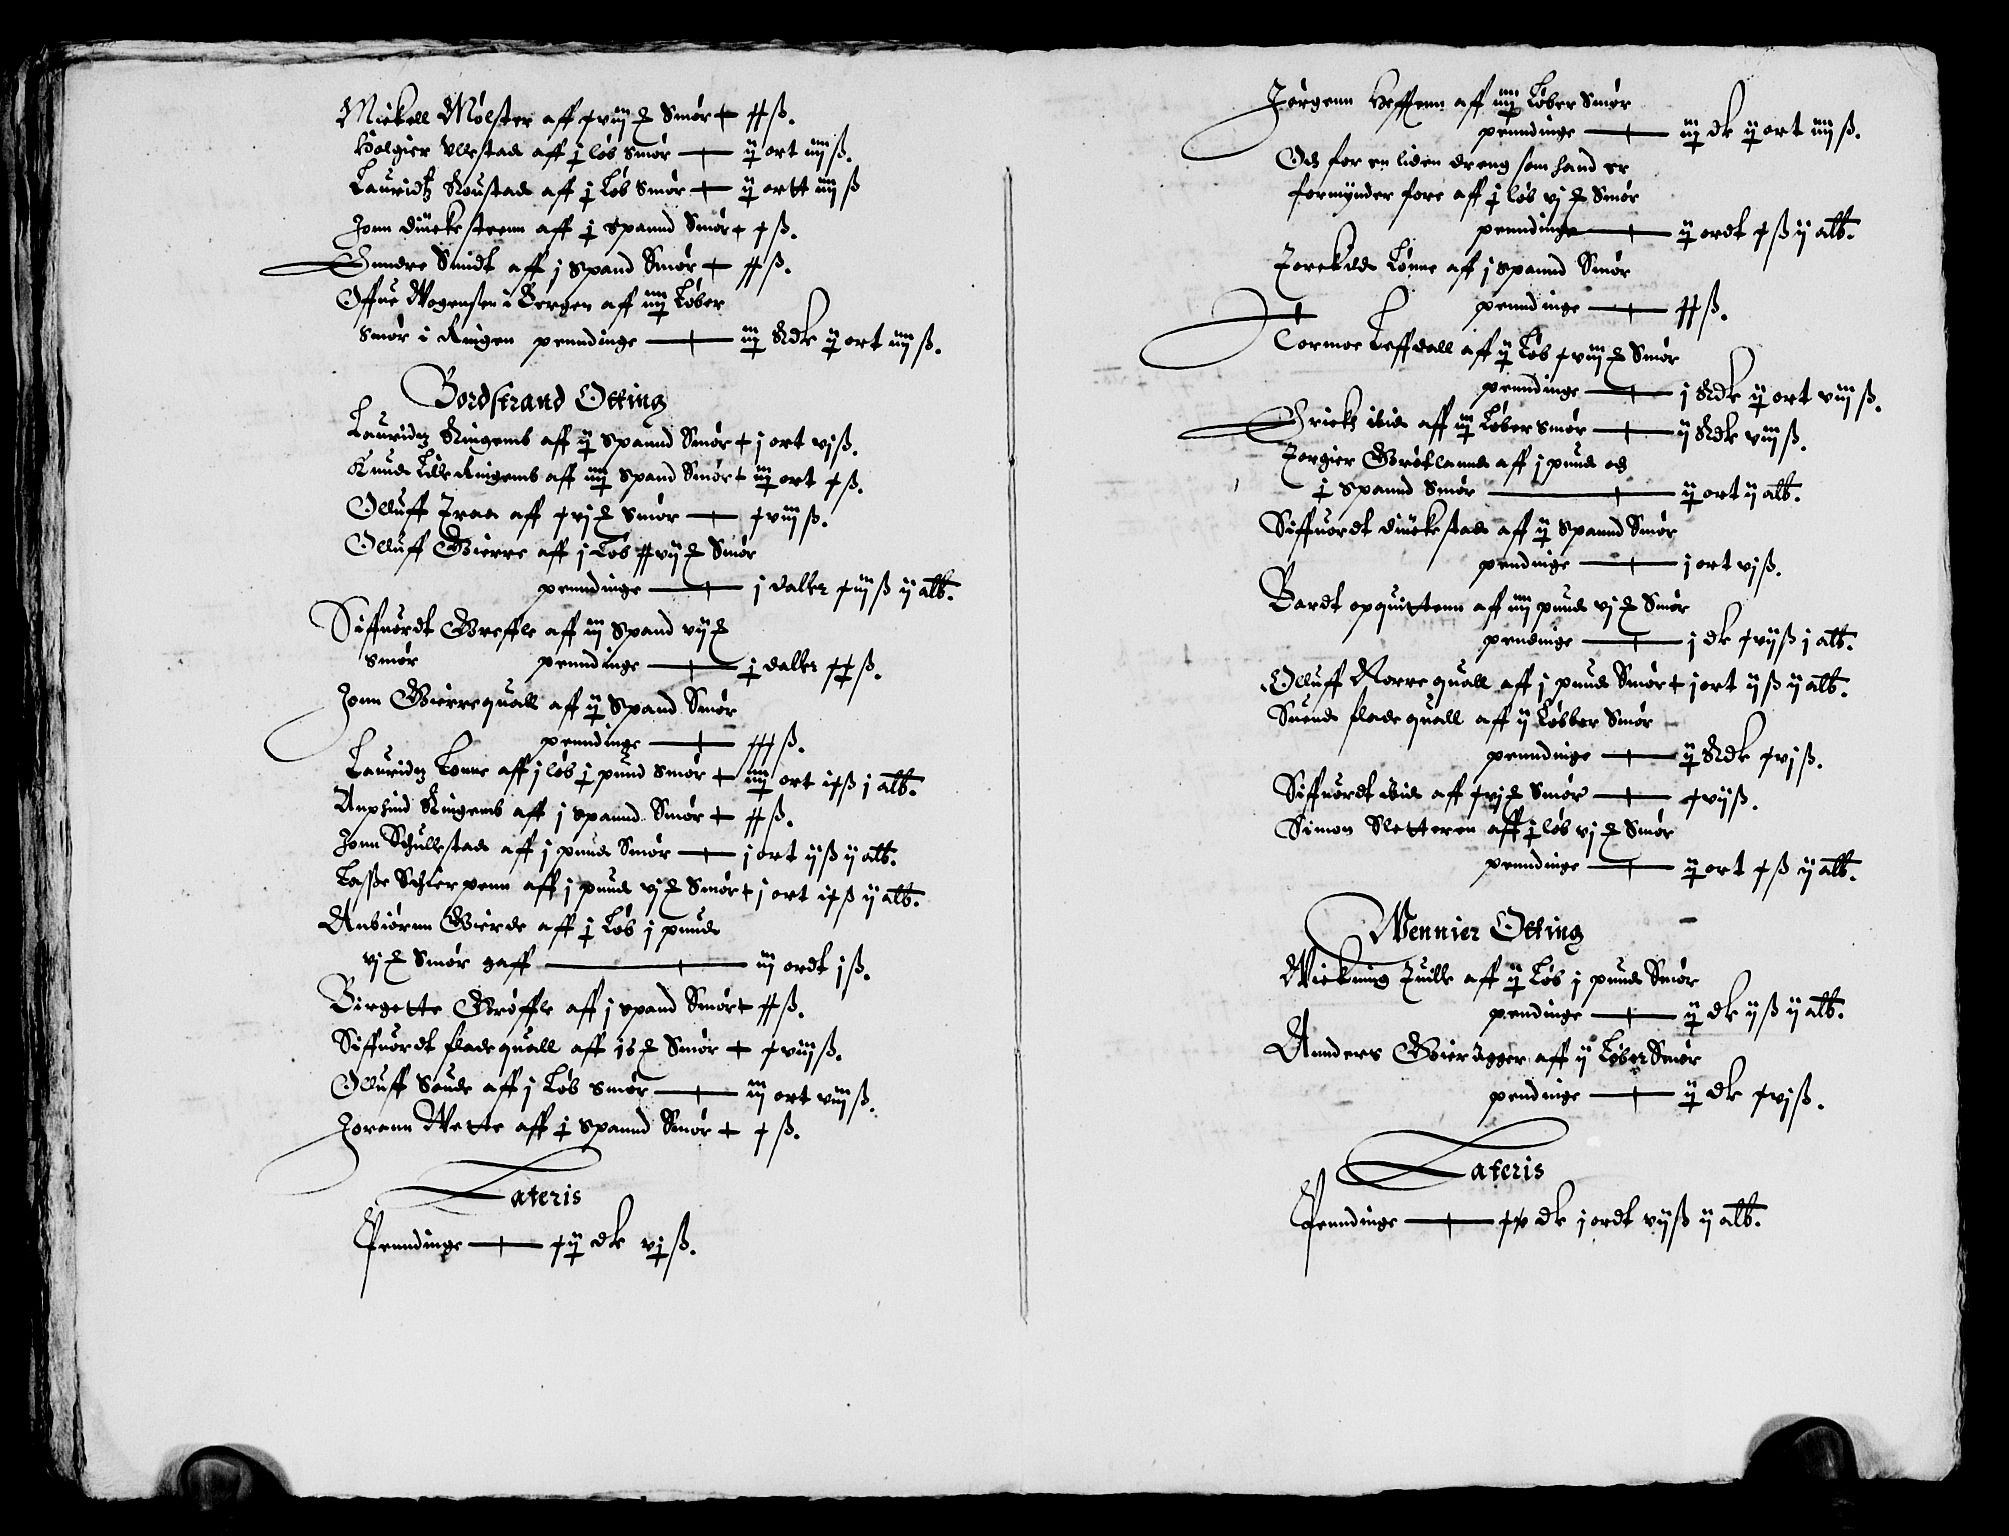 Mickell Mølster aff xviij ℔ Smør xx ß.
Holgier Vllestad aff j løb smør ij ort iiij ß.
Lauridtz Roustad aff j Løb smør ij ortt iiij ß
Jonn Dückesteenn aff j Spannd Smør x ß.
Gundre Smidt aff j Spand Smør xx ß.
Offue Mogensen i Bergen aff iiij Løber
Smør i Ringen penndinge iij Rdk ij ort iiij ß.
Bordstrand Otting
Lauridtz Ringemb aff ij Spannd Smør j ort vj ß.
Knud Lille Ringemb aff iiij Spand Smør iij ort x ß.
Olluff Jraa aff xvj ℔ Smør xviij ß.
Olluff Gierre aff j Løb xxvij ℔ Smør
penndinge j daller xiij ß ij alb.
Siffuordt Greffle aff iij Spand vij ℔
Smør penndinge j daller xx ß.
Jonn Gierrequall aff ij Spand Smør
penndinge xxx ß.
Lauridtz Lønne aff j løb j pund Smør iiij ort ix ß j alb.
Anphind Ringemb aff j Spannd Smør xx ß.
Jonn Schullestad aff j pund Smør j ort ij ß ij alb.
Lasse Schierpenn aff j pund vj ℔ Smør j ort ix ß ij alb.
Anbiørnn Gierde aff j Løb j pund
vj ℔ Smør gaff iij ordt j ß.
Birgette Grøffle aff j Spand Smør xx ß.
Siffuordt fladequall aff 16 ℔ Smør xviij ß.
Olluff Soude aff j Løb Smør iij ort viij ß.
Jorann Mette aff j Spannd Smør x ß.
Lateris
Penndinge xij dk vj ß.
Jørgenn Hefftenn aff iiij Løber Smør
penndinge iij dk ij ort iiij ß.
Och for en liden dreng som hand er
formÿnder fore aff j løb vj ℔ Smør
penndinge ij ordt x ß ij alb.
Jorekild Lønne aff j Spannd Smør
penndinge xx ß.
Tormoe Leffdall aff ij Løb xviij ℔ Smør
penndinge j Rdk ij ort viij ß.
Erich ibid aff iij Løber Smør ij Rdk viij ß.
Jorgier Grøtlannd aff j pund och
j Spannd Smør ij ort ij alb.
Siffuordt Dückestad aff ij Spannd Smør
pendinge j ort vj ß.
Bardt opquittenn aff iiij pund vj ℔ Smør
pendinge j dk xvij ß j alb.
Olluff Norrequall aff j pund Smør j ort ij ß ij alb.
Suend fladequall aff ij Løbber Smør
penndinge ij Rdk xvj ß.
Siffuordt ibid aff xvj ℔ Smør xvij ß.
Simon Sletteren aff j løb vj ℔ Smør
penndinge ij ort x ß ij alb.
Wennier Otting
Wickning Juille aff ij Løb j pund Smør
pendinge ij dk ij ß ij alb.
Annders Gierágger aff ij Løber Smør
pendinge ij dk xvj ß.
Lateris
Penndinge xv dk j ordt vij ß ij alb.